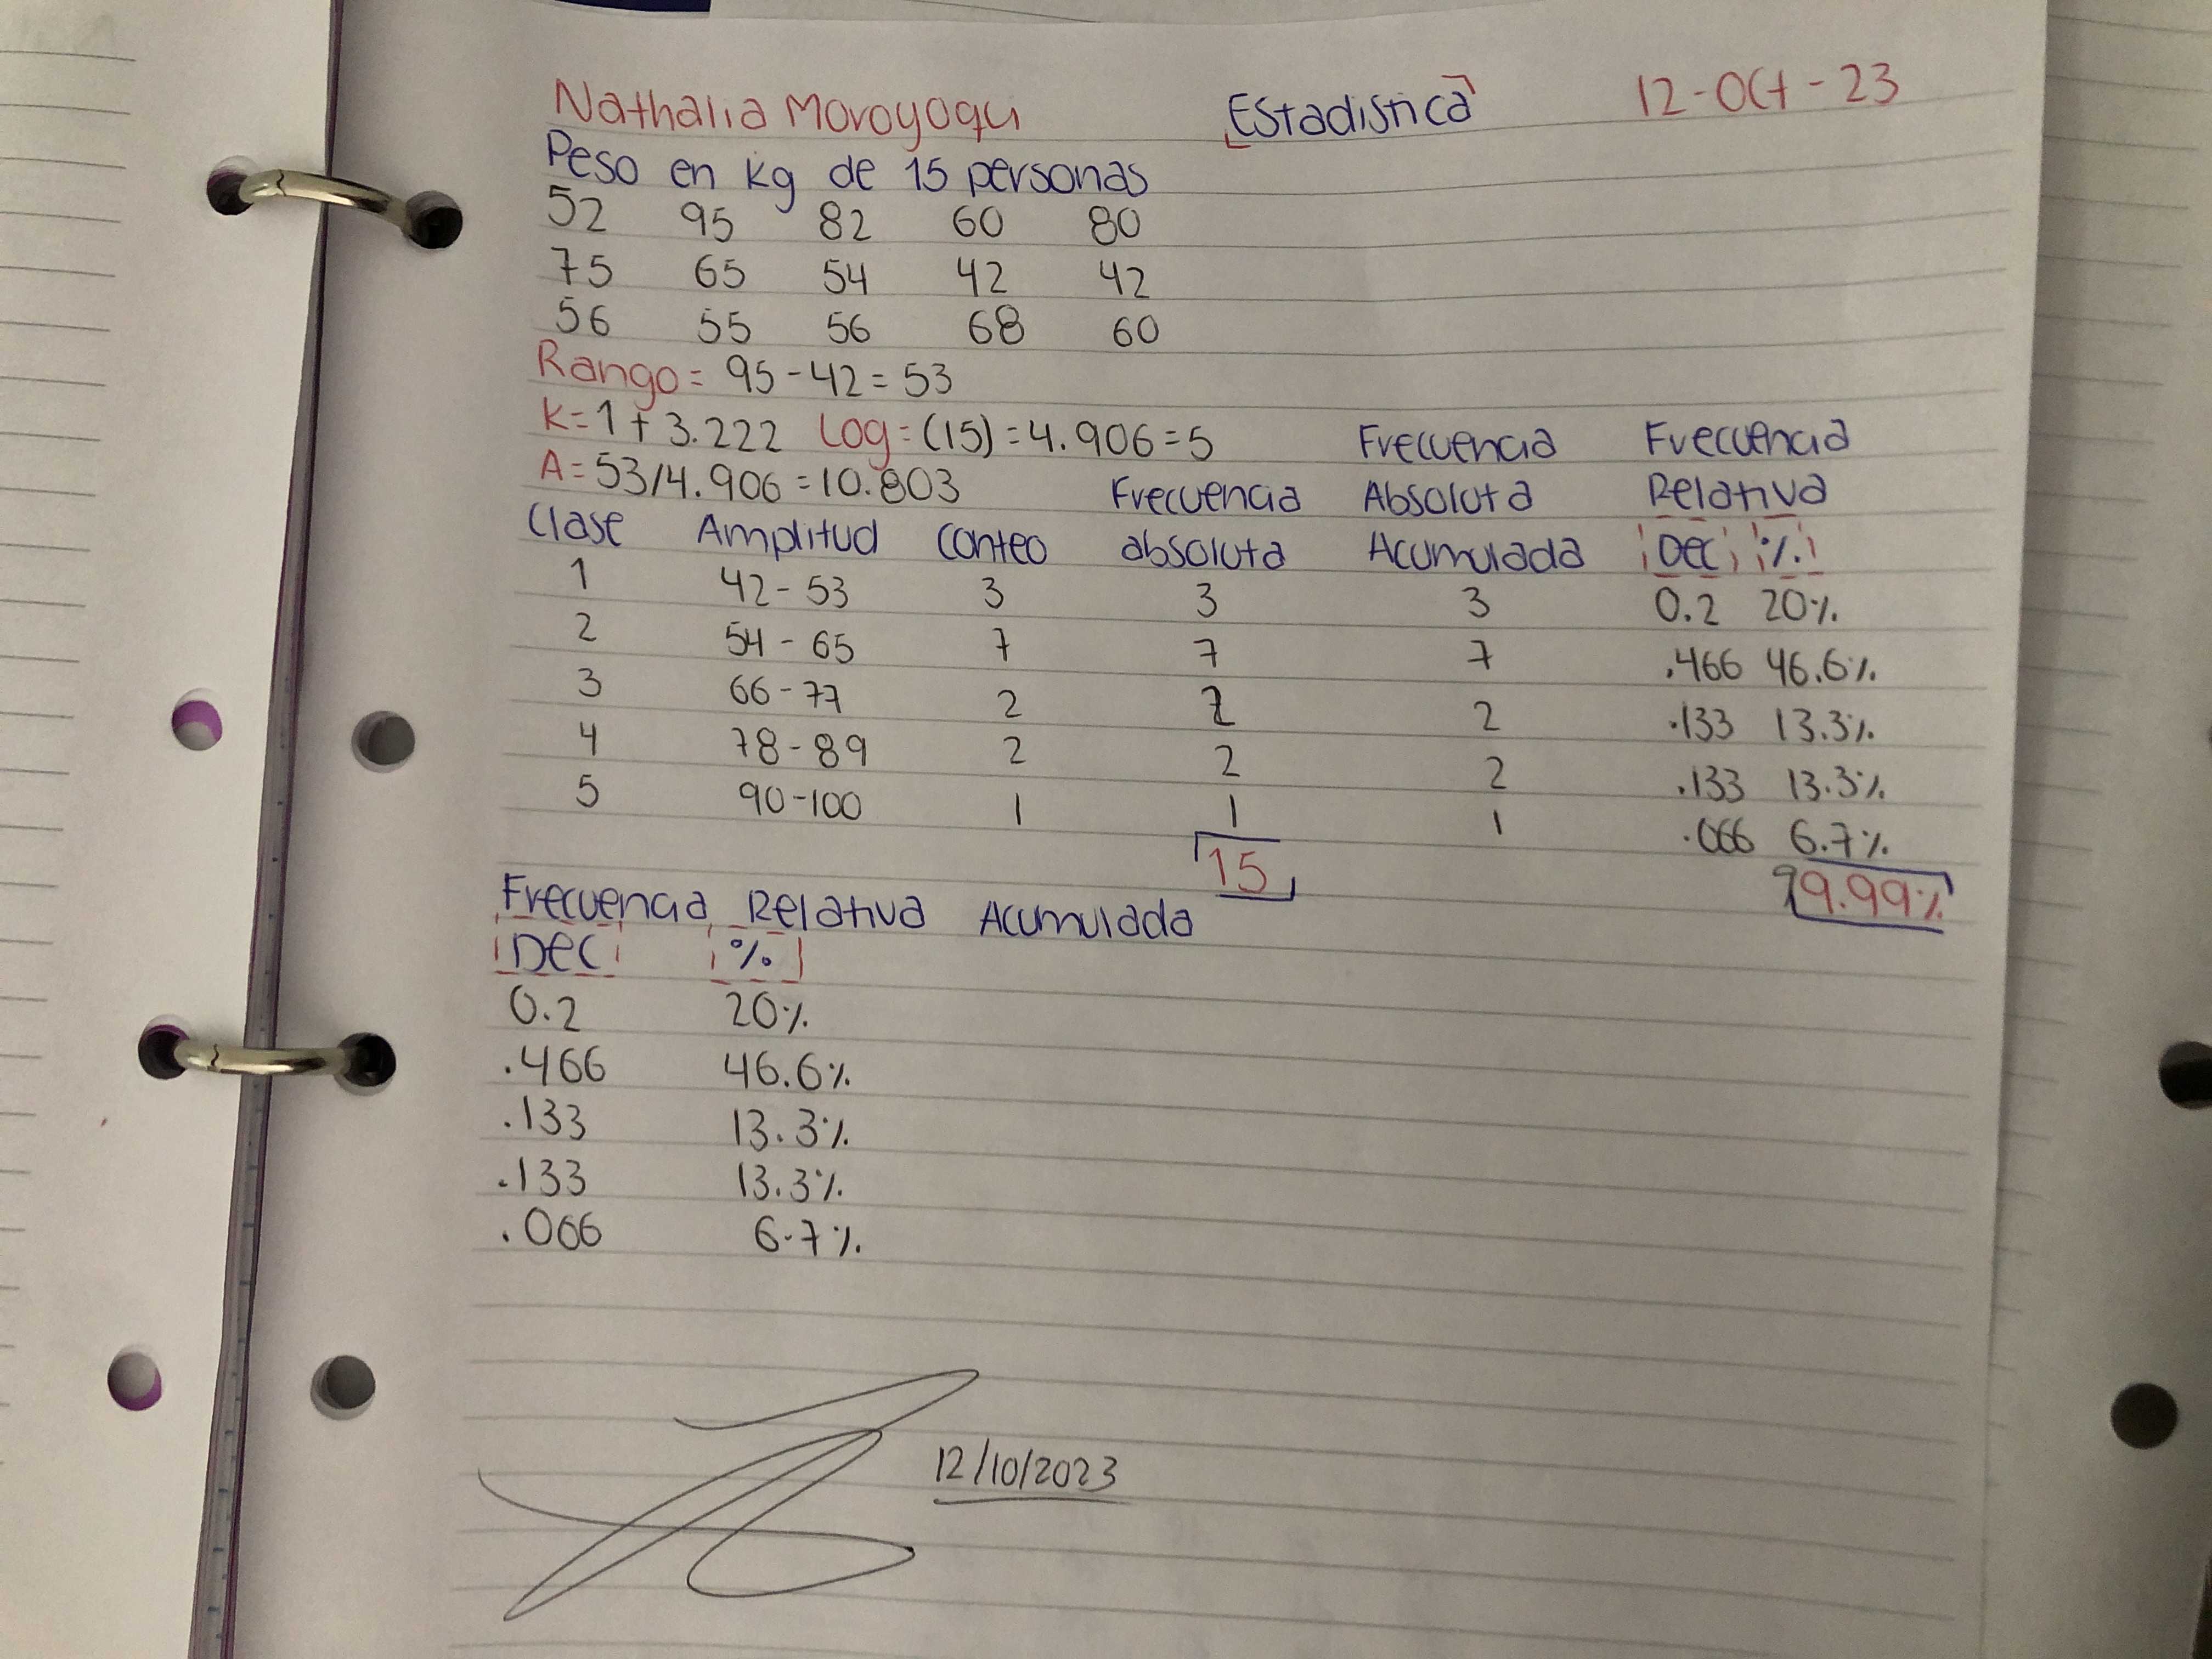 Nathalia Moroyoqui Estadistica 12-Oct-23
Peso en kg de 15 personas
52 95 82 60 80
75 65 54 42 42
56 55 56 68 60
Rango= 95-42=53
K=1+3.222 Log=(15)=4.906=5 Frecuencia Frecuencia
A=53/4.906=10.803 Frecuencia Absoluta Relativa
Clase Amplitud Conteo absoluta Acumulada Dec %
1 42-53 3 3 3 0.2 20%
2 54-65 7 7 7 .466 46.6%
3 66-77 2 2 2 .133 13.3%
4 78-89 2 2 2 .133 13.3%
5 90-100 1 1 1 .066 6.7%
15 99.99%
Frecuencia Relativa Acumulada
Dec %
0.2 20%
.466 46.6%
.133 13.3%
.133 13.3%
.066 6.7%
12/10/2023